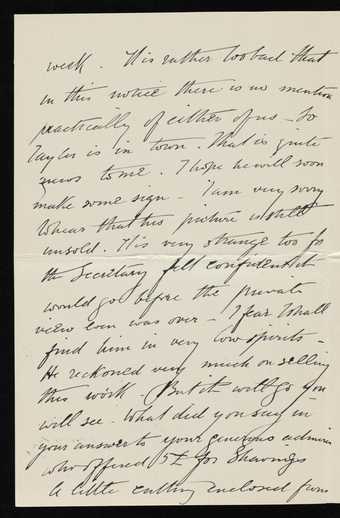 week. It is rather too bad that
in this notice there is no mention
practically of either of us - So
Taylor is in town. That is quite
news to me. I hope he will soon
make some sign - I am very sorry
to hear that his picture is still
unsold. It is very strange too for
the Secretary felt confident it
would go before the private
view even was over - I fear I shall
find him in very low spirits -
He reckoned very much on selling
this work. But it will go you
will see. What did you say in
your answer to your generous admirer
who offered 5£ for Shavings
A little cutting enclosed from